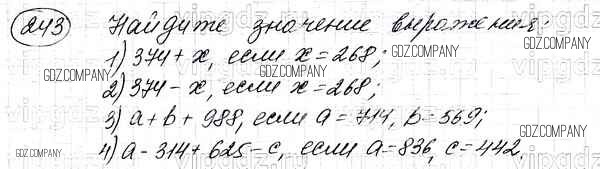 243 Найдите значение выражения:
1) 374 + x, если x = 268;
2) 374 - x, если x = 268;
3) a + b + 988, если a = 714, b = 569;
4) a - 314 + 625 - c, если a = 836, c = 442.
GDZ.COMPANY
GDZ.COMPANY
GDZ.COMPANY
GDZ.COMPANY
GDZ.COMPANY
GDZ.COMPANY
vipgdz.com